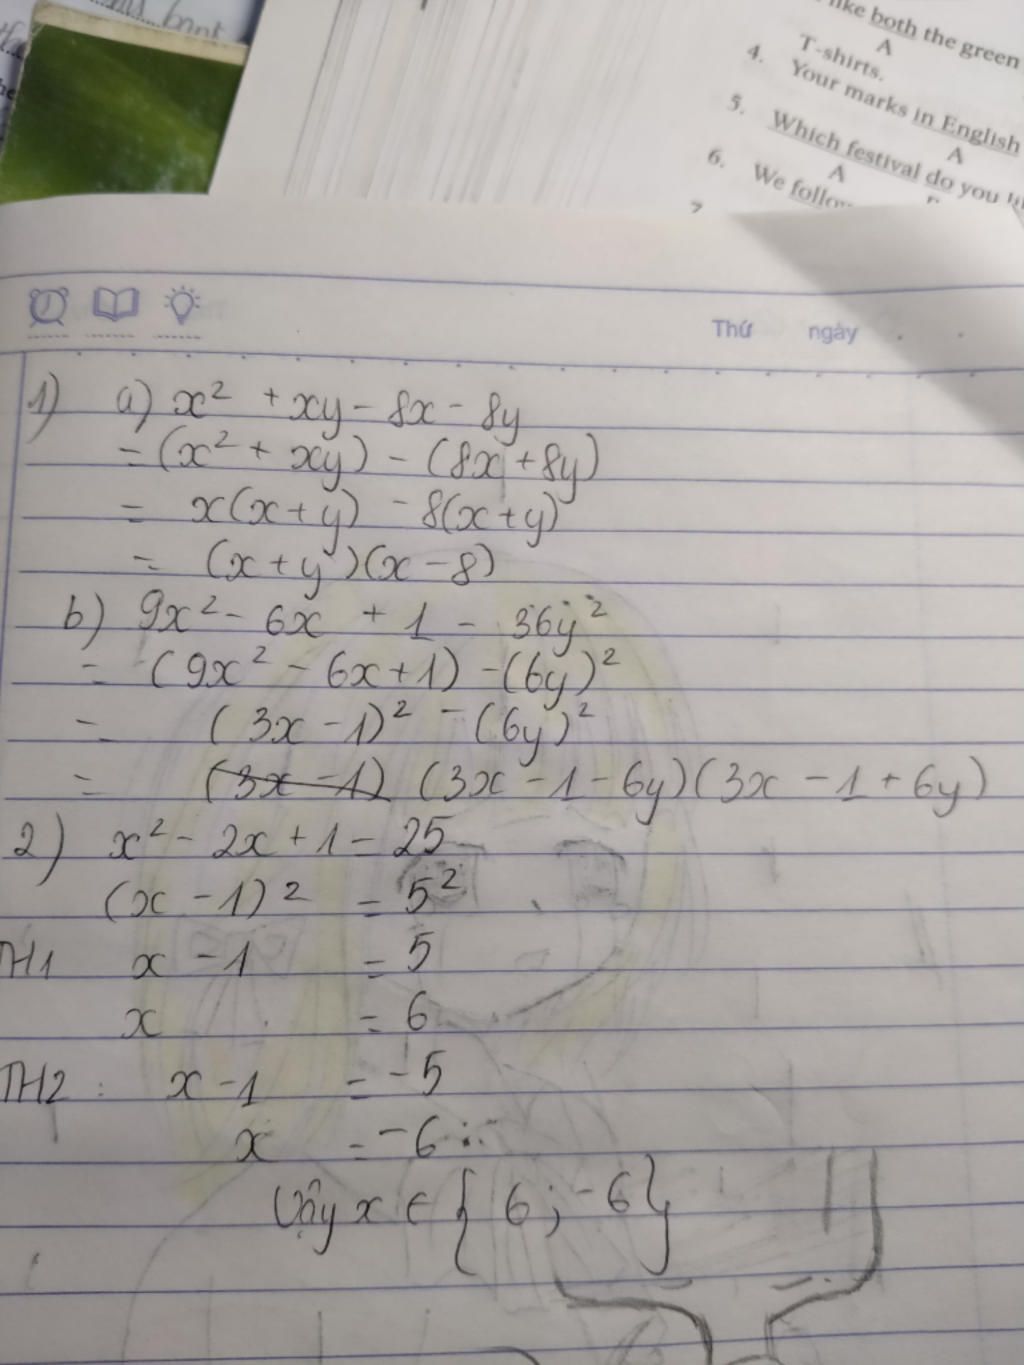 bnnt
like both the green
A
T-shirts.
4. Your marks in English
A
5. Which festival do you
A
6. We follow
7
Thứ ngày
1) a) x² + xy - 8x - 8y
= (x² + xy) - (8x + 8y)
= x(x + y) - 8(x + y)
= (x + y)(x - 8)
b) 9x² - 6x + 1 - 36y²
= (9x² - 6x + 1) - (6y)²
= (3x - 1)² - (6y)²
= (3x - 1) (3x - 1 - 6y)(3x - 1 + 6y)
2) x² - 2x + 1 = 25
(x - 1)² = 5²
TH1 x - 1 = 5
x = 6
TH2 : x - 1 = -5
x = -6
Vậy x ∈ { 6 ; -6}